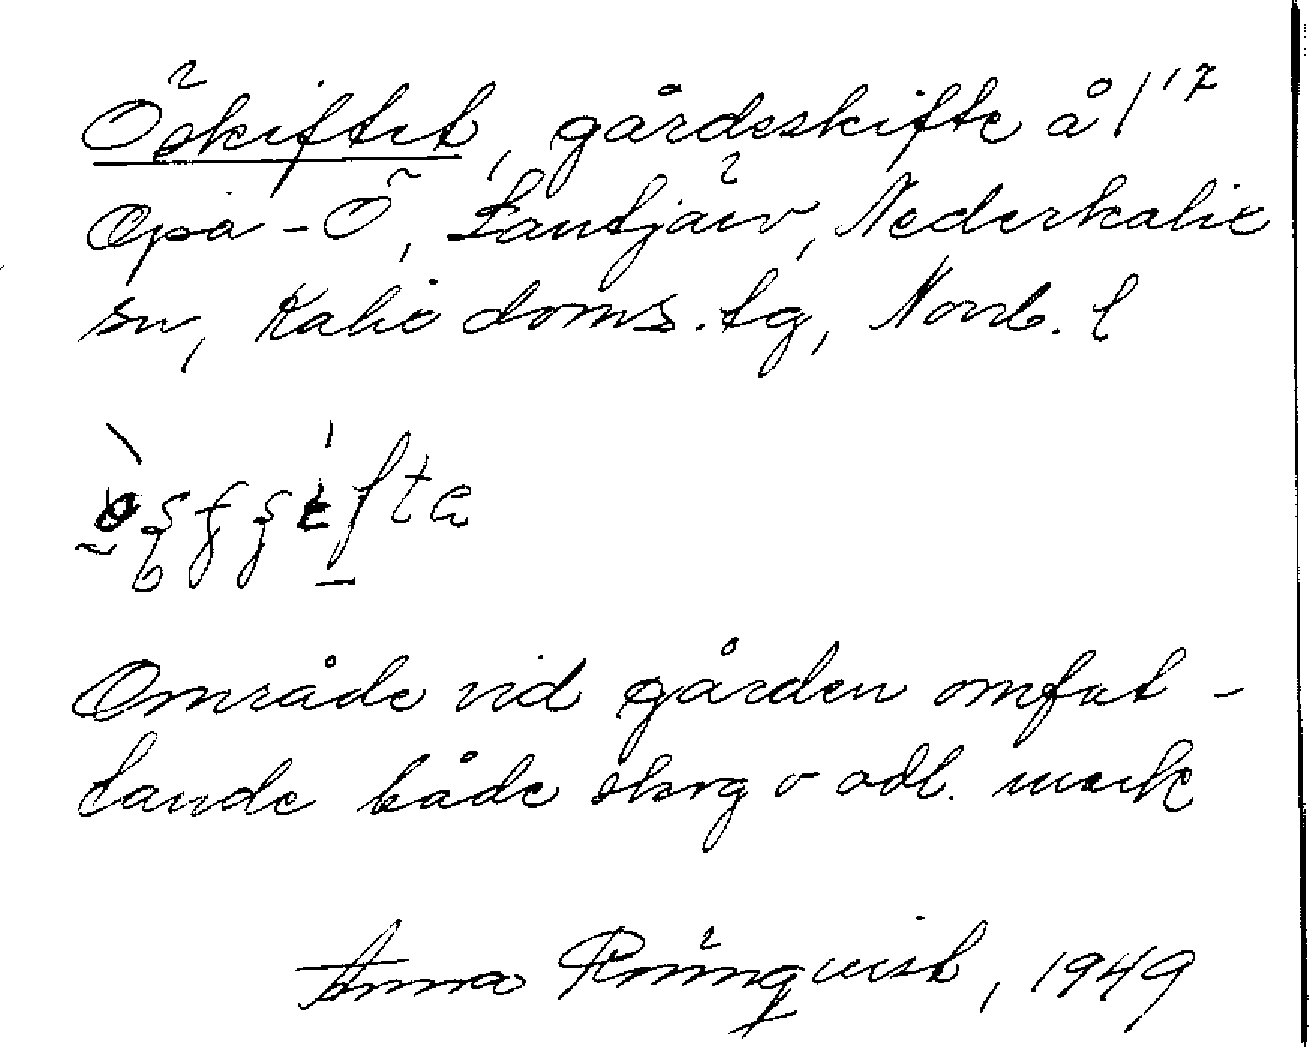 Öskiftet, gårdsskifte å 1/17
Opia-Ö, Lantjärv, Nederkalix
sn, Kalix doms. tg, Norrb. l
Område vid gården omfat-
tande både skog o odl. mark
Anna Rönnqvist, 1949